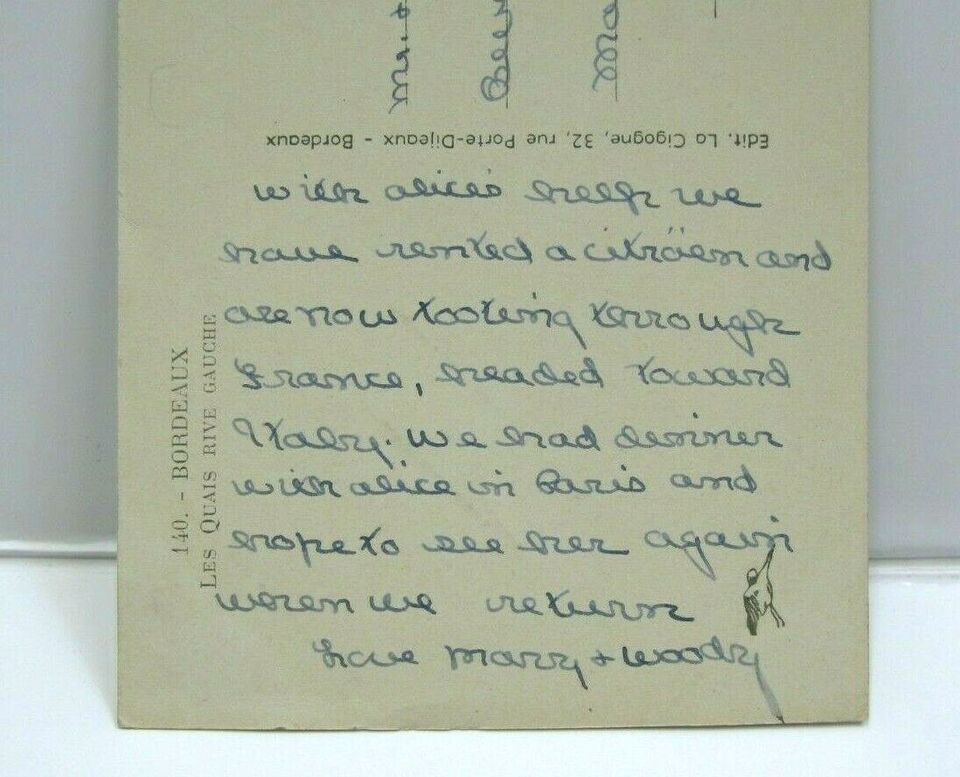 Edit. La Cigogne, 32, rue Porte-Dijeaux - Bordeaux
140. - BORDEAUX
LES QUAIS RIVE GAUCHE
with alice's help we
have rented a citröen and
are now tooting through
France, headed toward
Italy. We had dinner
with alice in Paris and
hope to see her again
when we return
Love Marry + Woody